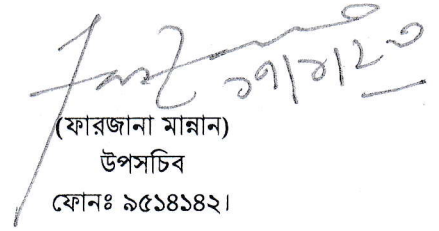 (ফারজানা মান্নান)
উপসচিব
ফোনঃ ৯৫১৪১৪২।